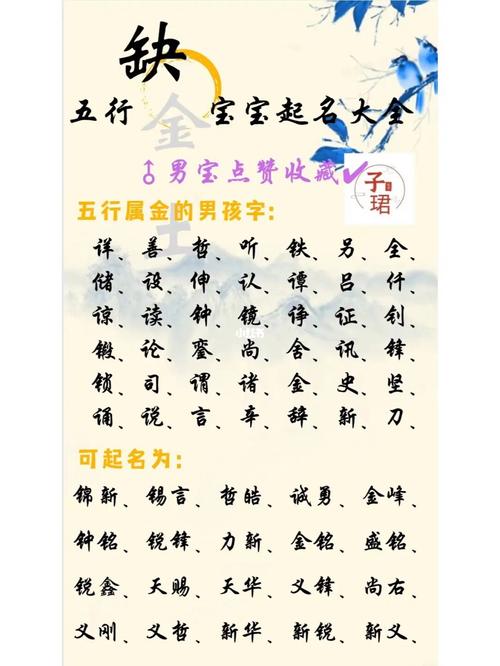 缺
五行金土宝宝起名大全
♂男宝点赞收藏✔
子珺
五行属金的男孩字:
详、善、哲、听、铁、另、全、
储、设、伸、认、谭、吕、仟、
谅、读、钟、镜、诤、证、钊、
锻、论、銮、尚、舍、讯、锋、
小红书
锁、司、谓、诸、金、史、坚、
诵、说、言、辛、辞、新、刀、
可起名为:
锦新、锡言、哲皓、诚勇、金峰、
钟铭、锐锋、力新、金铭、盛铭、
锐鑫、天赐、天华、义锋、尚右、
义刚、义哲、新华、新锐、新义、